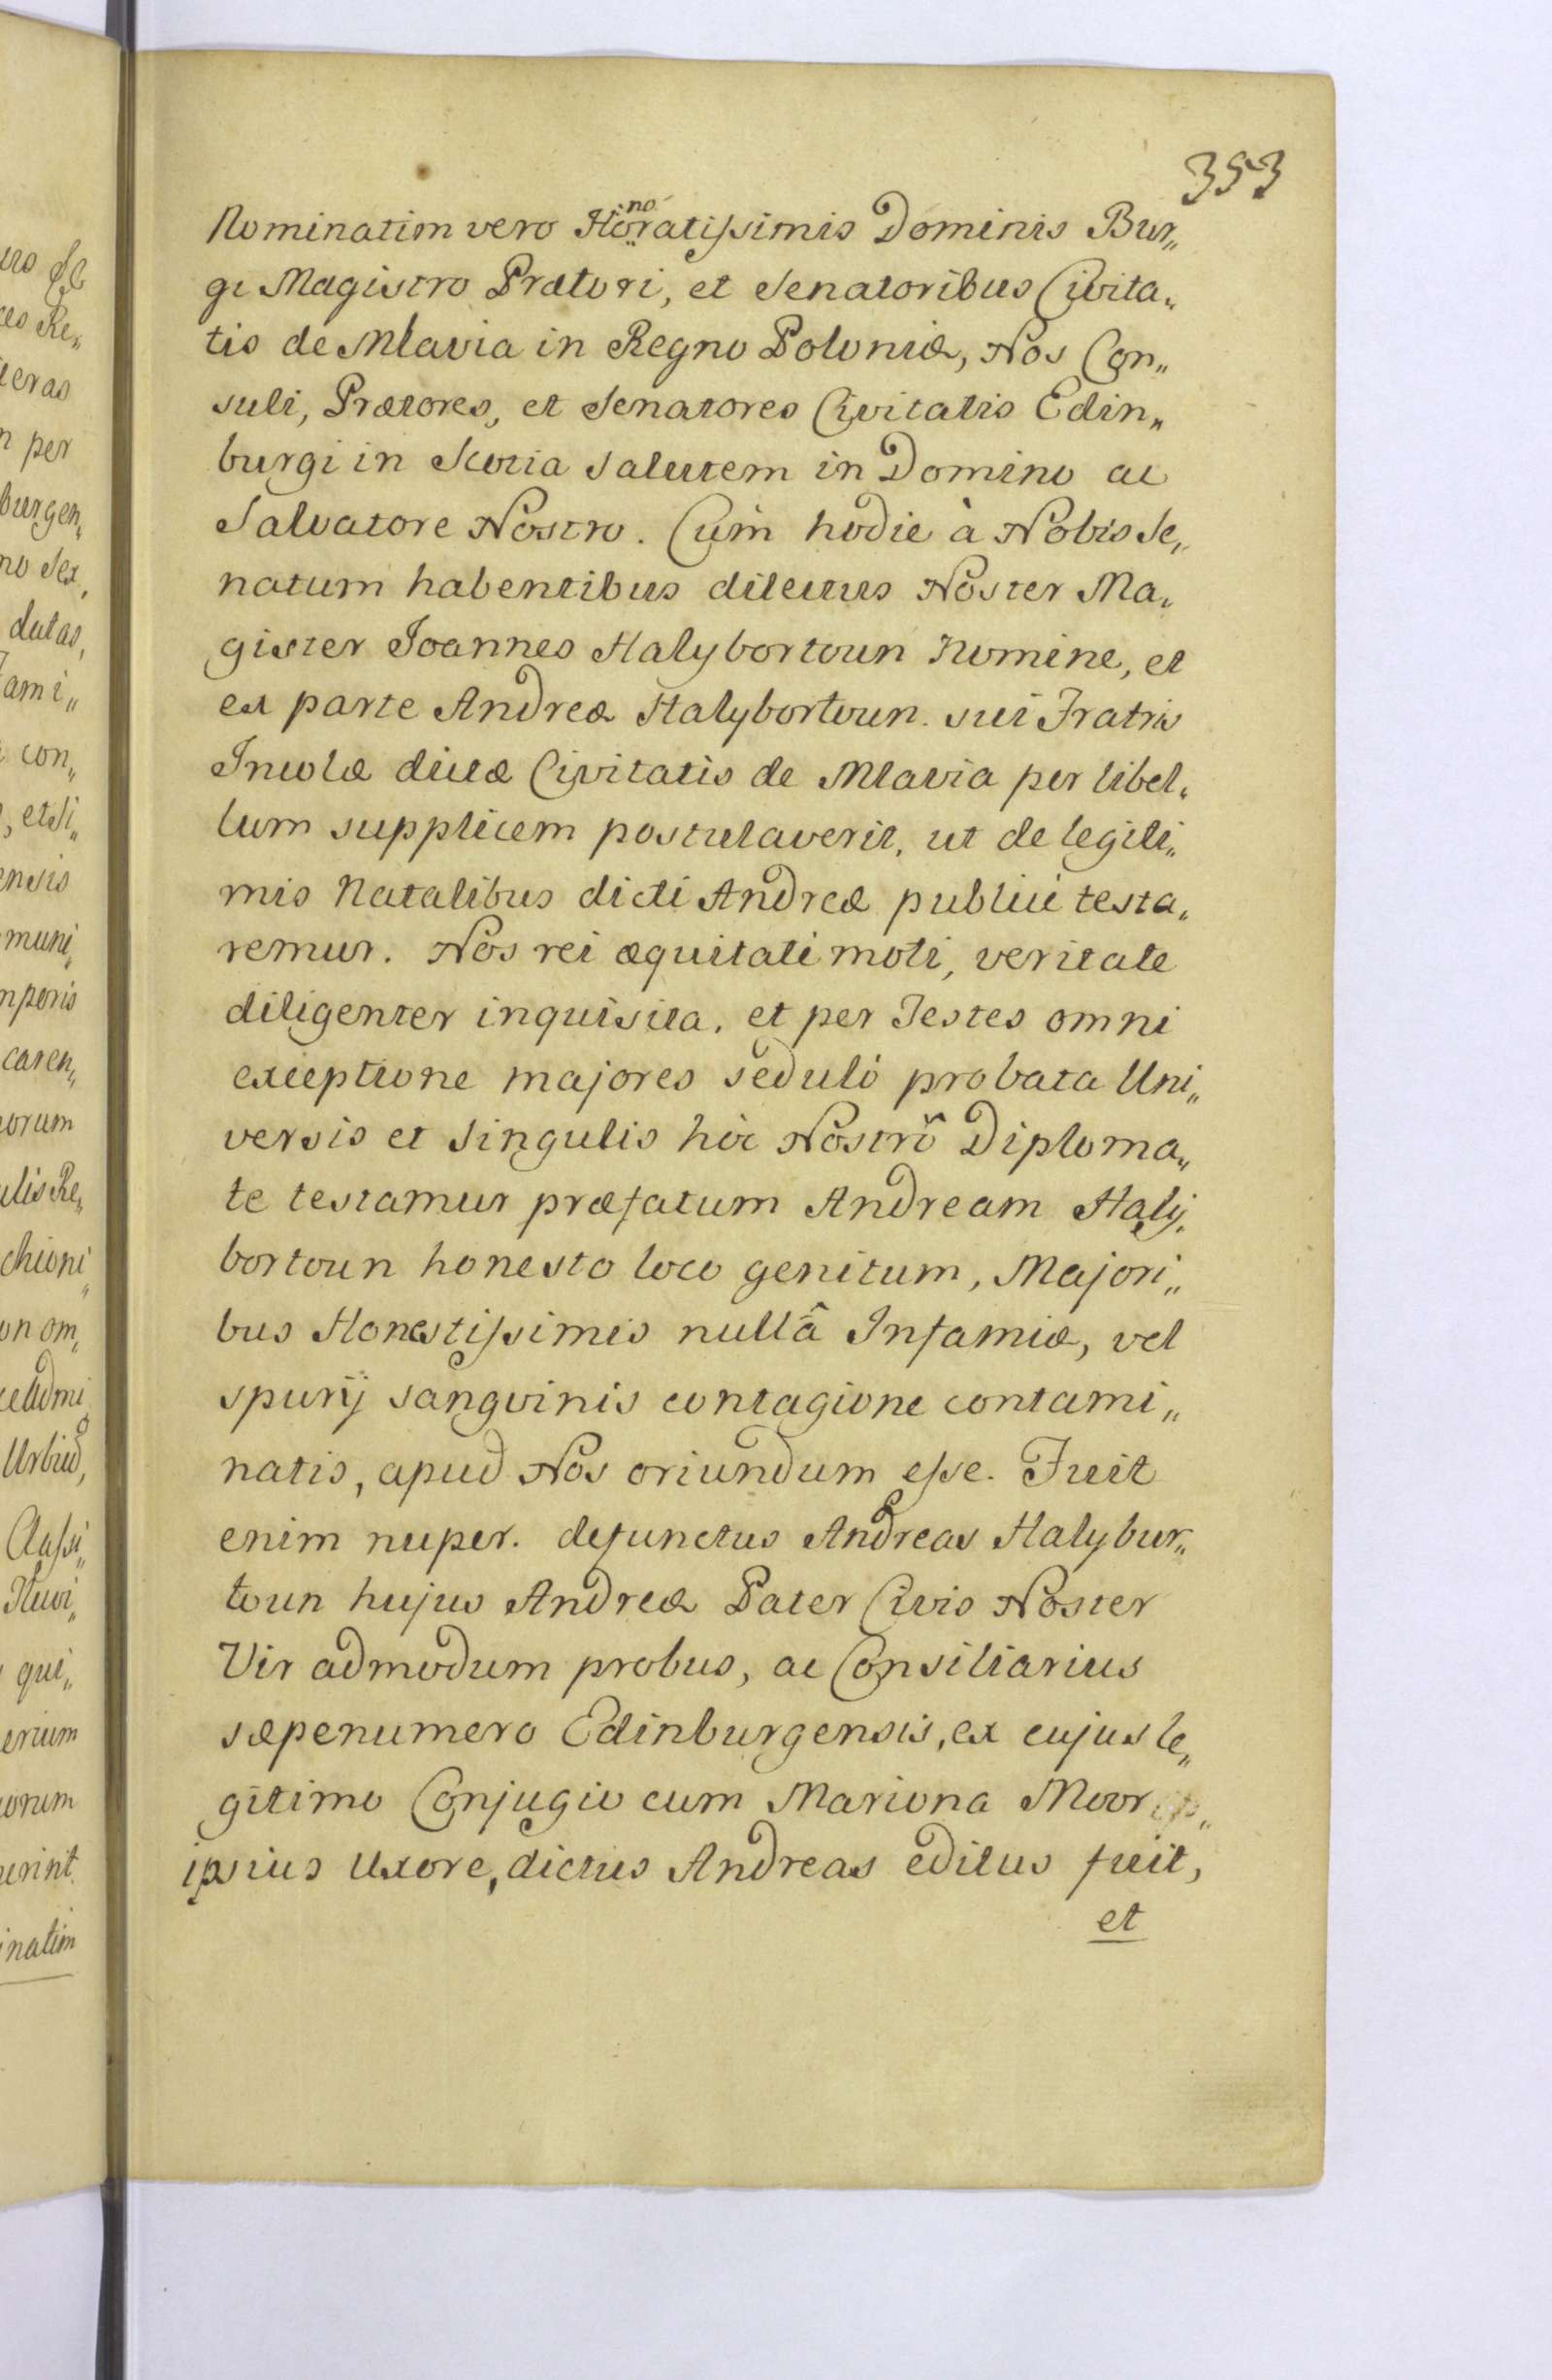 353
Nominatim vero Honoratissimis Dominis Bur„
gi Magistro Prætori, et Senatoribus Civita„
tis de Mlavia in Regno Poloniæ, Nos Con„
suli, Prætores, et Senatores Civitatis Edin„
burgi in Scotia salutem in Domino ac
Salvatore Nostro. Cum hodie à Nobis Se„
natum habentibus dilectus Noster Ma„
gister Joannes Halybortoun Nomine, et
ex parte Andreæ Halybortoun. sui Fratris
Incolæ dictæ Civitatis de Mlavia per libel„
lum supplicem postulaverit, ut de legiti„
mis Natalibus dicti Andreæ publicè testa„
remur. Nos rei æquitati moti, veritate
diligenter inquisita, et per Testes omni
exceptione majores seduló probata Uni„
versis et singulis hoc Nostrô Diploma„
te testamur præfatum Andream Haly„
bortoun honesto loco genitum, Majori„
bus Honestissimis nullâ Infamiæ, vel
spurÿ sangvinis contagione contami„
natis, apud Nos oriundum esse. Fuit
enim nuper. defunctus Andreas Halybur„
toun hujus Andreæ Pater Civis Noster
Vir admodum probus, ac Consiliarius
sæpenumero Edinburgensis, ex cujus le„
gitimo Conjugio cum Mariona Moor
ipsius Uxore, dictus Andreas editus fuit,
et